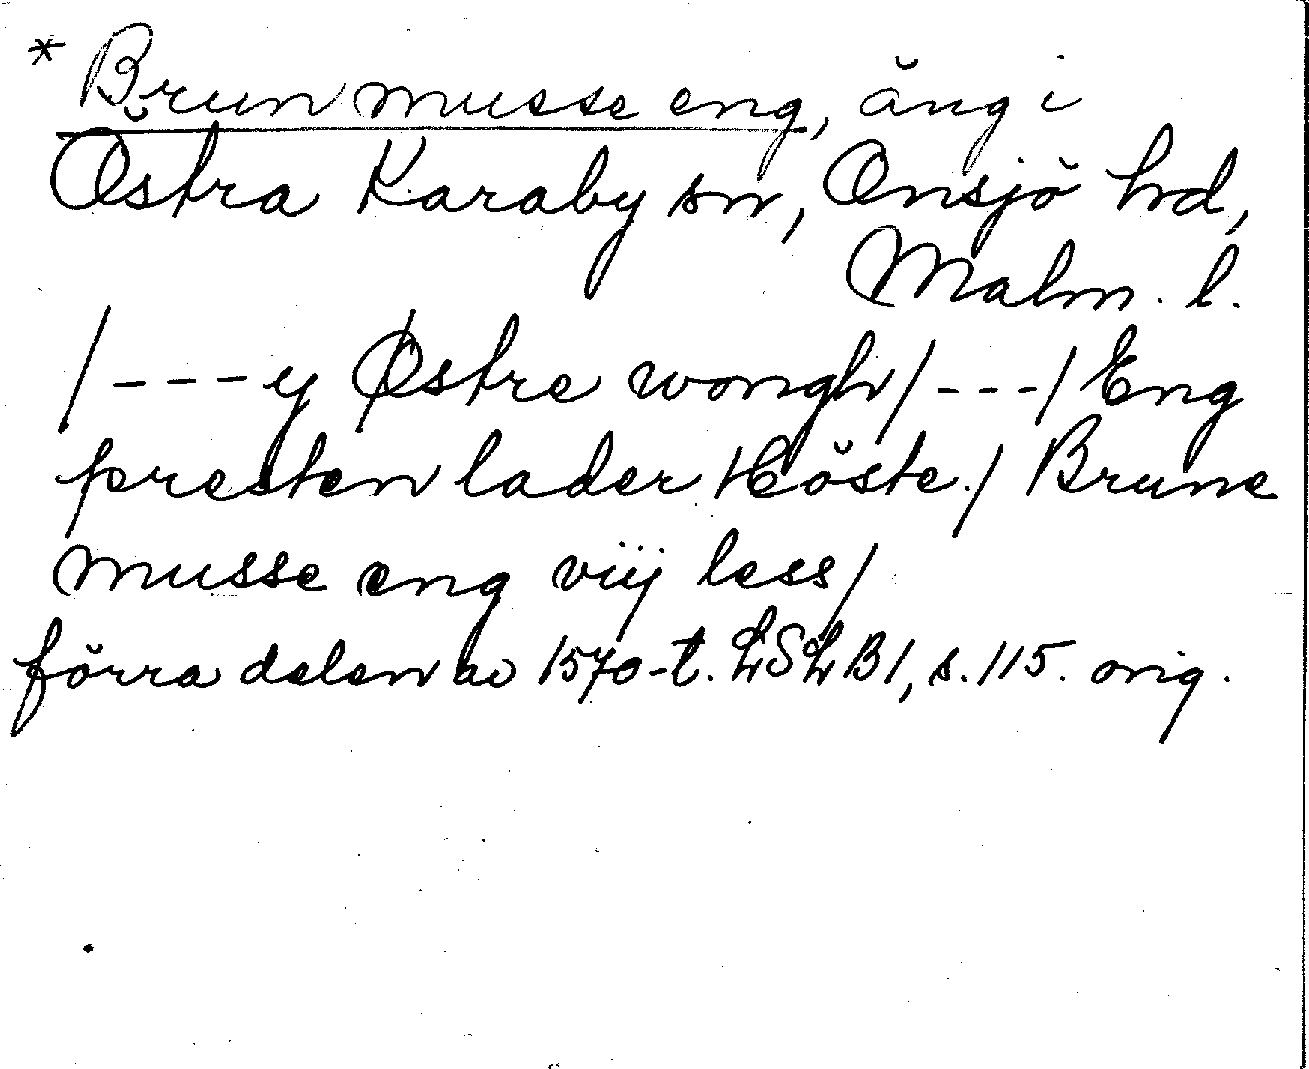 * Brun musse eng, äng i
Östra Karaby sn, Onsjö hd,
Malm. l.
/---y Østre wongh/---/Eng
presten lader Höste./ Brune
musse eng viij less/
förra delen av 1570-t. LSLB1, s. 115. orig.